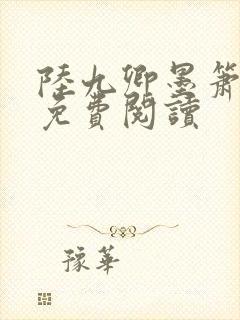 陸九卿墨簫
免費閱讀
豫華